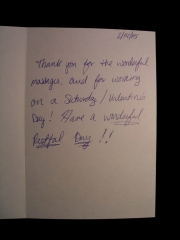 2/14/09
Thank you for the wonderful
massage, and for working
on a Saturday / Valentine's
Day! Have a wonderful
Restful Day!!